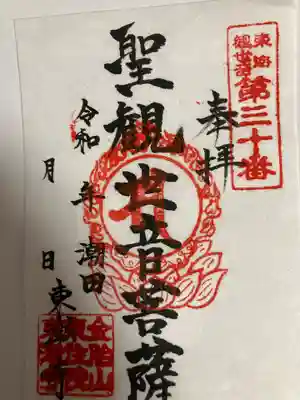 東海
観世音
第三十番
奉拝
聖観世音菩薩
令和 年
月 日
潮田
東漸寺